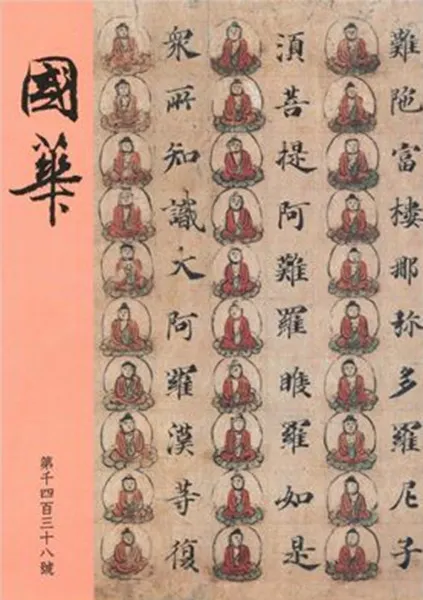 難陁富樓那弥多羅尼子
須菩提阿難羅睺羅如是
衆所知識大阿羅漢等復
國華
第千四百三十八號